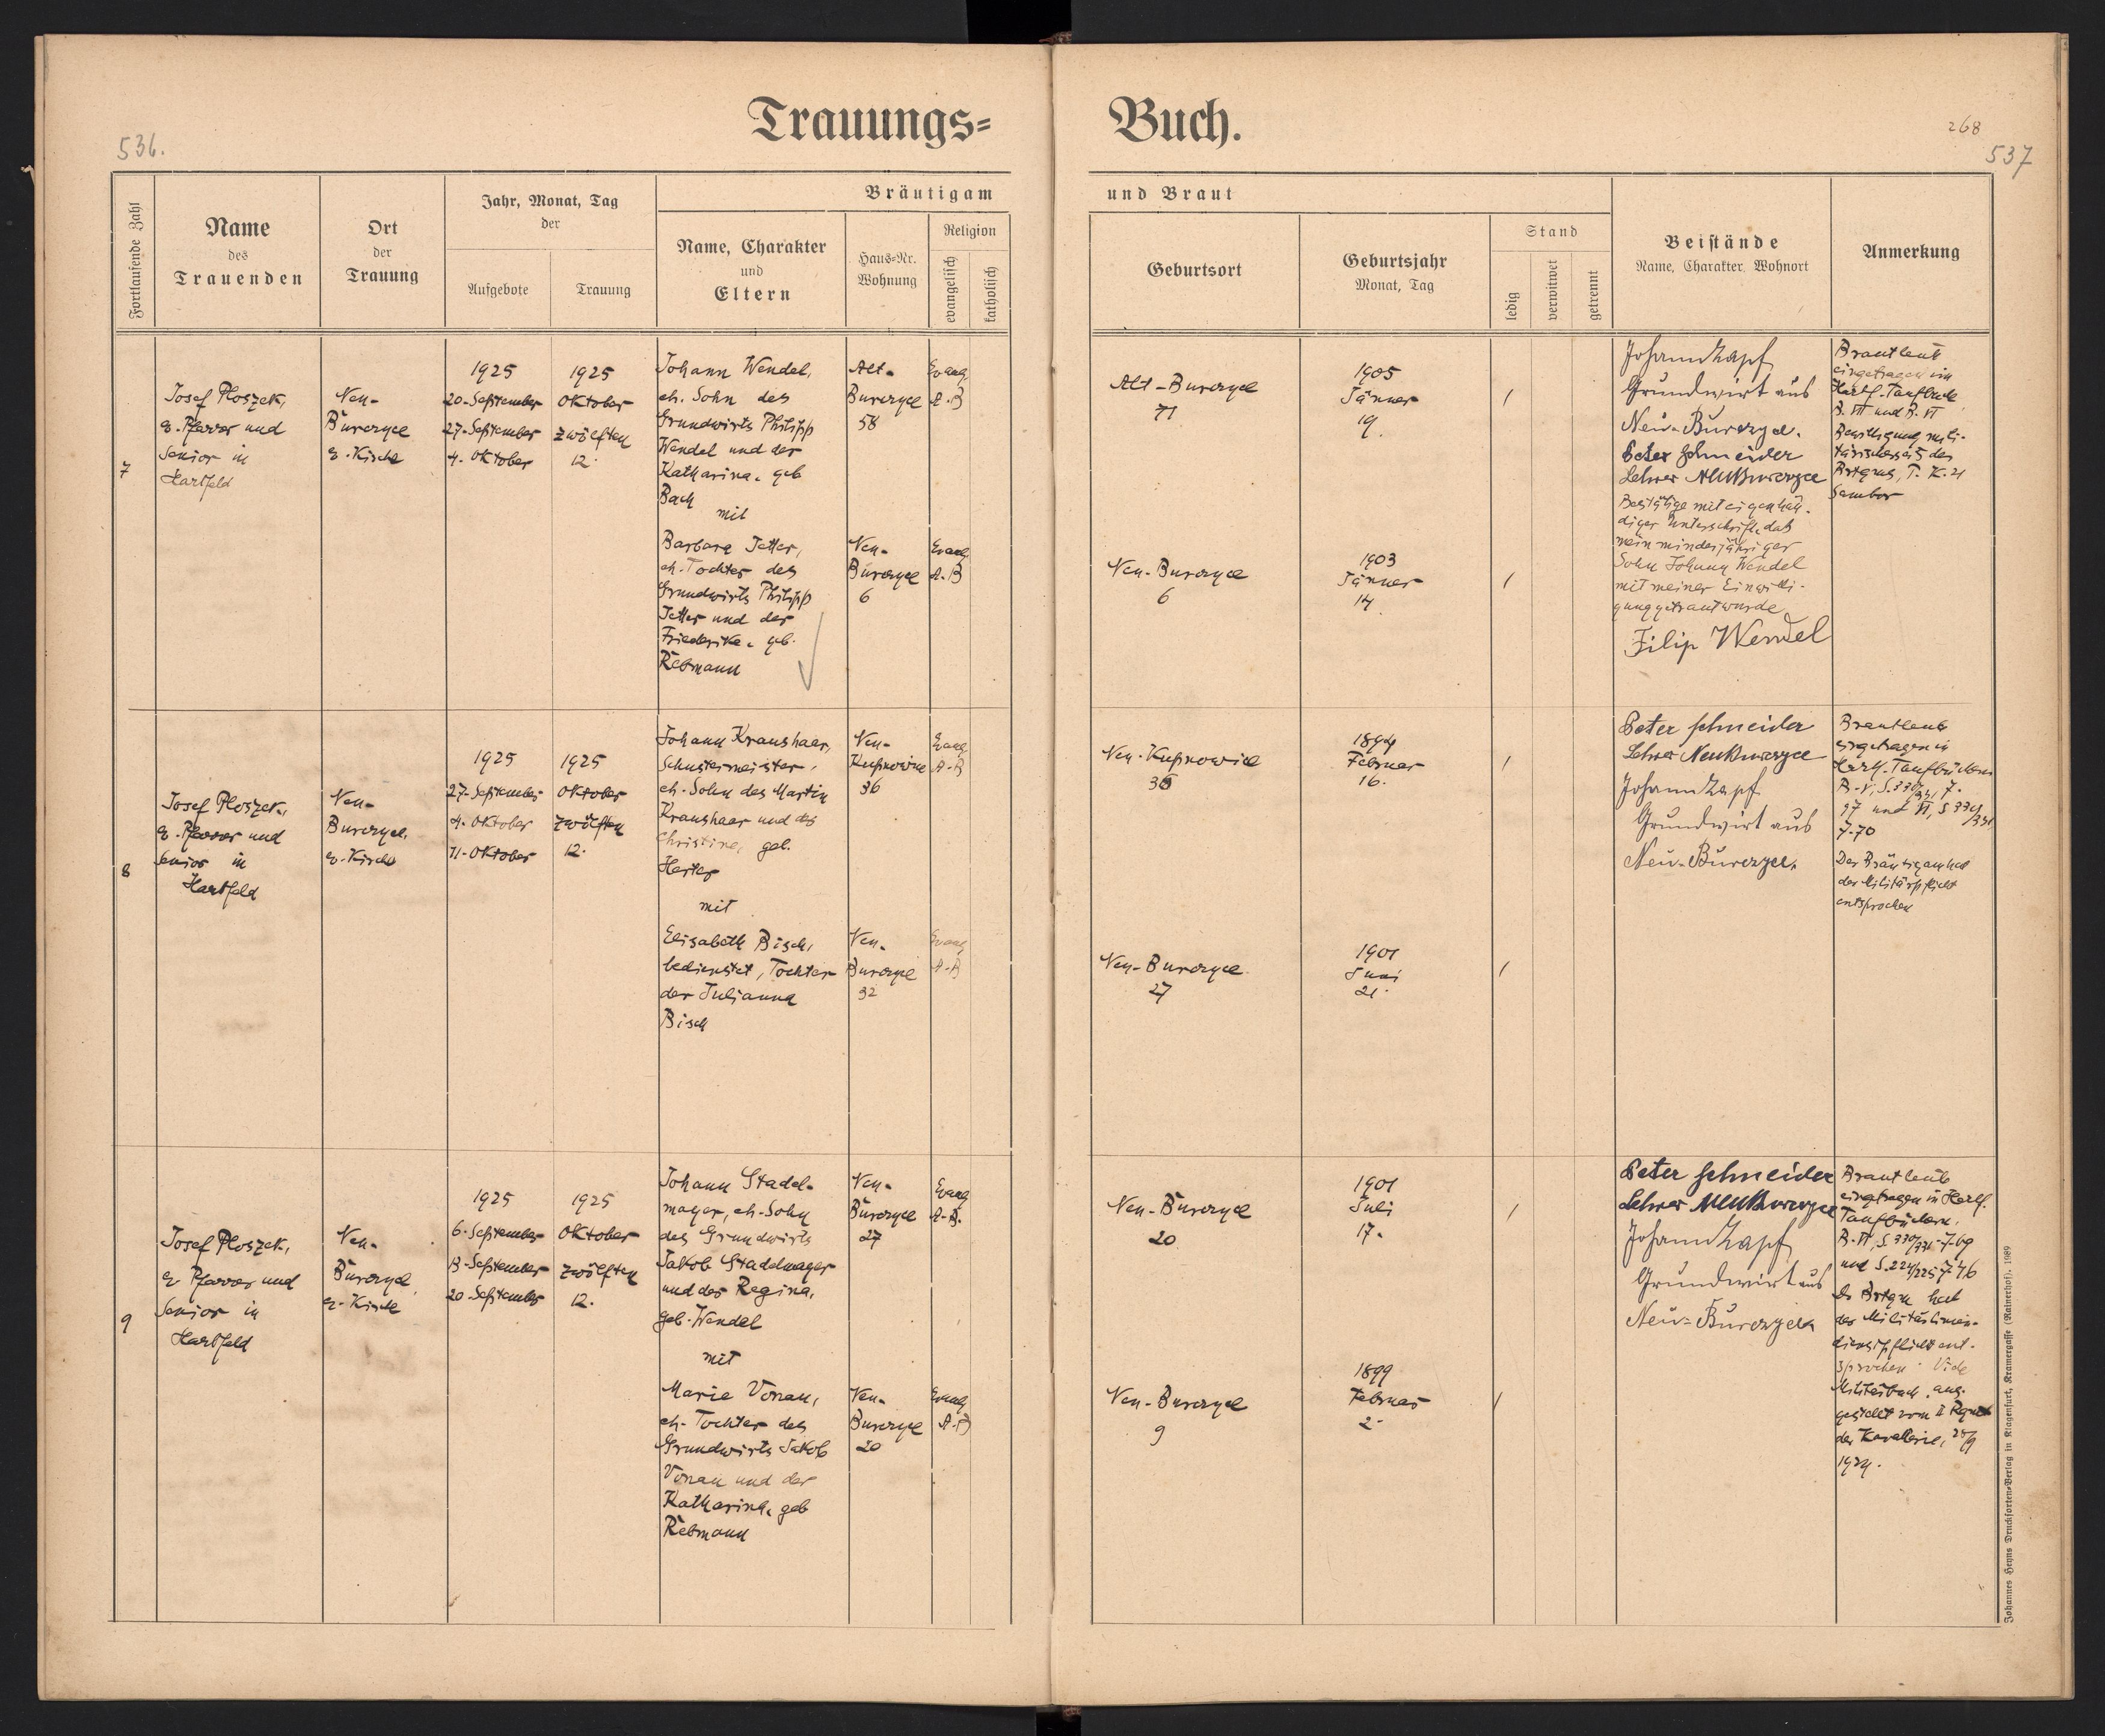 Trauungs=
Buch.
536.
268
537
Fortlaufende Zahl
Name
des
Trauenden
Ort
der
Trauung
Jahr, Monat, Tag
der
Aufgebote
Trauung
Bräutigam
und Braut
Name, Charakter
und
Eltern
Haus=Nr.
Wohnung
Religion
evangelisch
katholisch
Geburtsort
Geburtsjahr
Monat, Tag
Stand
ledig
verwitwet
getrennt
Beistände
Name, Charakter, Wohnort
Anmerkung
7
Josef Ploszek,
e. Pfarrer und
Senior in
Hartfeld
Neu-
Burczyce
e. Kirche
1925
20. September
27. September
4. Oktober
1925
Oktober
zwölften
12.
Johann Wendel,
eh. Sohn des
Grundwirts Philipp
Wendel und der
Katharina, geb
Bach
mit
Barbara Jetter,
eh. Tochter des
Grundwirts Philipp
Jetter und der
Friederike, geb.
Rebmann
Alt-
Burczyce
58
Neu-
Burczyce
6
Evang
A.B
Evang
A.B
Alt-Burczyce
71
Neu-Burczyce
6
1905
Jänner
19.
1903
Jänner
14
Johann Zapf
Grundwirt aus
Neu-Burczyce.
Peter Schneider
Lehrer NeuBurczyce
Bestätige mit eigenhän-
diger Unterschrift, daß
mein minderjähriger
Sohn Johann Wendel
mit meiner Einwilli-
gung getraut wurde
Filip Wendel
Brautleute
eingetragen im
Hartf. Taufbuche
B. VI und B. VI
Bewilligung mili-
tärischerseits des
Brtgms, P. K. U
Sambor
8
Josef Ploszek,
e. Pfarrer und
Senior in
Hartfeld
Neu-
Burczyce,
e. Kirche
1925
27. September
4. Oktober
11. Oktober
1925
Oktober
zwölften
12.
Johann Kraushaar,
Schustermeister,
eh. Sohn des Martin
Kraushaar und der
Christine, geb.
Herter
mit
Elisabeth Bisch,
bedienstet, Tochter
der Julianna
Bisch
Neu-
Kupnowice
36
Neu-
Burczyce
32
Evang
A.B
Evang
A.B
Neu-Kupnowice
36
Neu-Burczyce
27
1894
Februar
16.
1901
Juni
21.
Peter Schneider
Lehrer NeuBurczyce
Johann Zapf
Grundwirt aus
Neu-Burczyce.
Brautleute
eingetragen in
Hartf. Taufbüchern
B. V, S. 330/331, 7.
97 und VI, S 334
7.70
Der Bräutigam hat
der Militärpflicht
entsprochen
9
Josef Ploszek,
e. Pfarrer und
Senior in
Hartfeld
Neu-
Burczyce,
e. Kirche
1925
6. September
13. September
20. September
1925
Oktober
zwölften
12.
Johann Stadel-
mayer, eh. Sohn
des Grundwirts
Jakob Stadelmayer
und der Regina,
geb. Wendel
mit
Marie Vonau,
eh. Tochter des
Grundwirts Jakob
Vonau und der
Katharina, geb
Rebmann
Neu-
Burczyce
27
Neu-
Burczyce
20
Evang
A.B.
Evang
A.B
Neu-Burczyce
20
Neu-Burczyce
9
1901
Juli
17.
1899
Februar
2.
Peter Schneider
Lehrer NeuBurczyce
Johann Zapf
Grundwirt aus
Neu-Burczyce
Brautleute
eingetragen in Hartf.
Taufbüchern.
B. VI, S. 330/331 7.69
und S. 224/225 7.76
Dr Brtgm hat
der Militärlinien-
dienstpflicht ent-
sprochen. Vide
Militärbuch, aus-
gestellt vom II Rgmt
der Kavallerie, 24/9
1924.
Johannes Heyns Drucksorten=Verlag in Klagenfurt, Kramergasse (Rainerhof). 1989